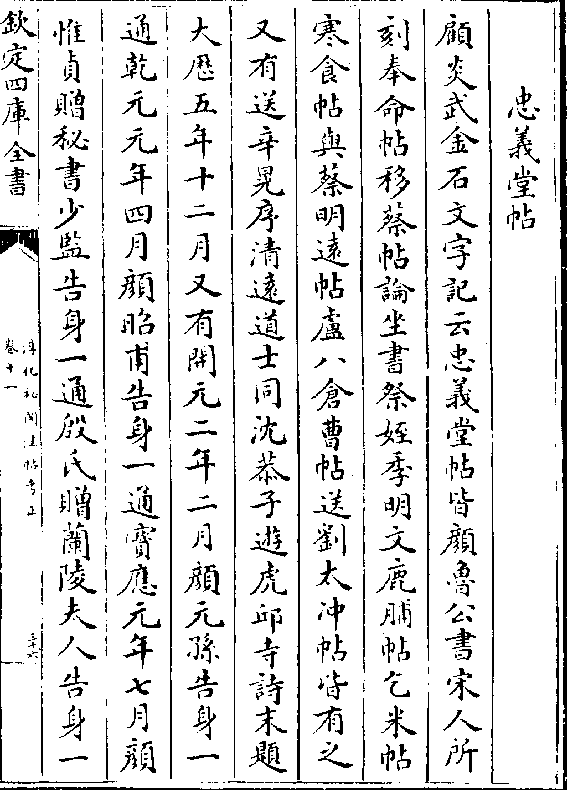 忠義堂帖
顧炎武金石文字記云忠義堂帖皆顏魯公書宋人所
刻奉命帖移蔡帖論坐書祭姪季明文鹿脯帖乞米帖
寒食帖與蔡明遠帖盧八倉曹帖送劉太冲帖皆有之
又有送辛晃序清遠道士同沈恭子遊虎邱寺詩末題
大厯五年十二月又有開元二年二月顏元孫告身一
通乾元元年四月顏昭甫告身一通寶應元年七月顏
惟貞贈秘書少監告身一通殷氏贈蘭陵夫人告身一
欽定四庫全書
淳化祕閣法帖考正
卷十一
三十六